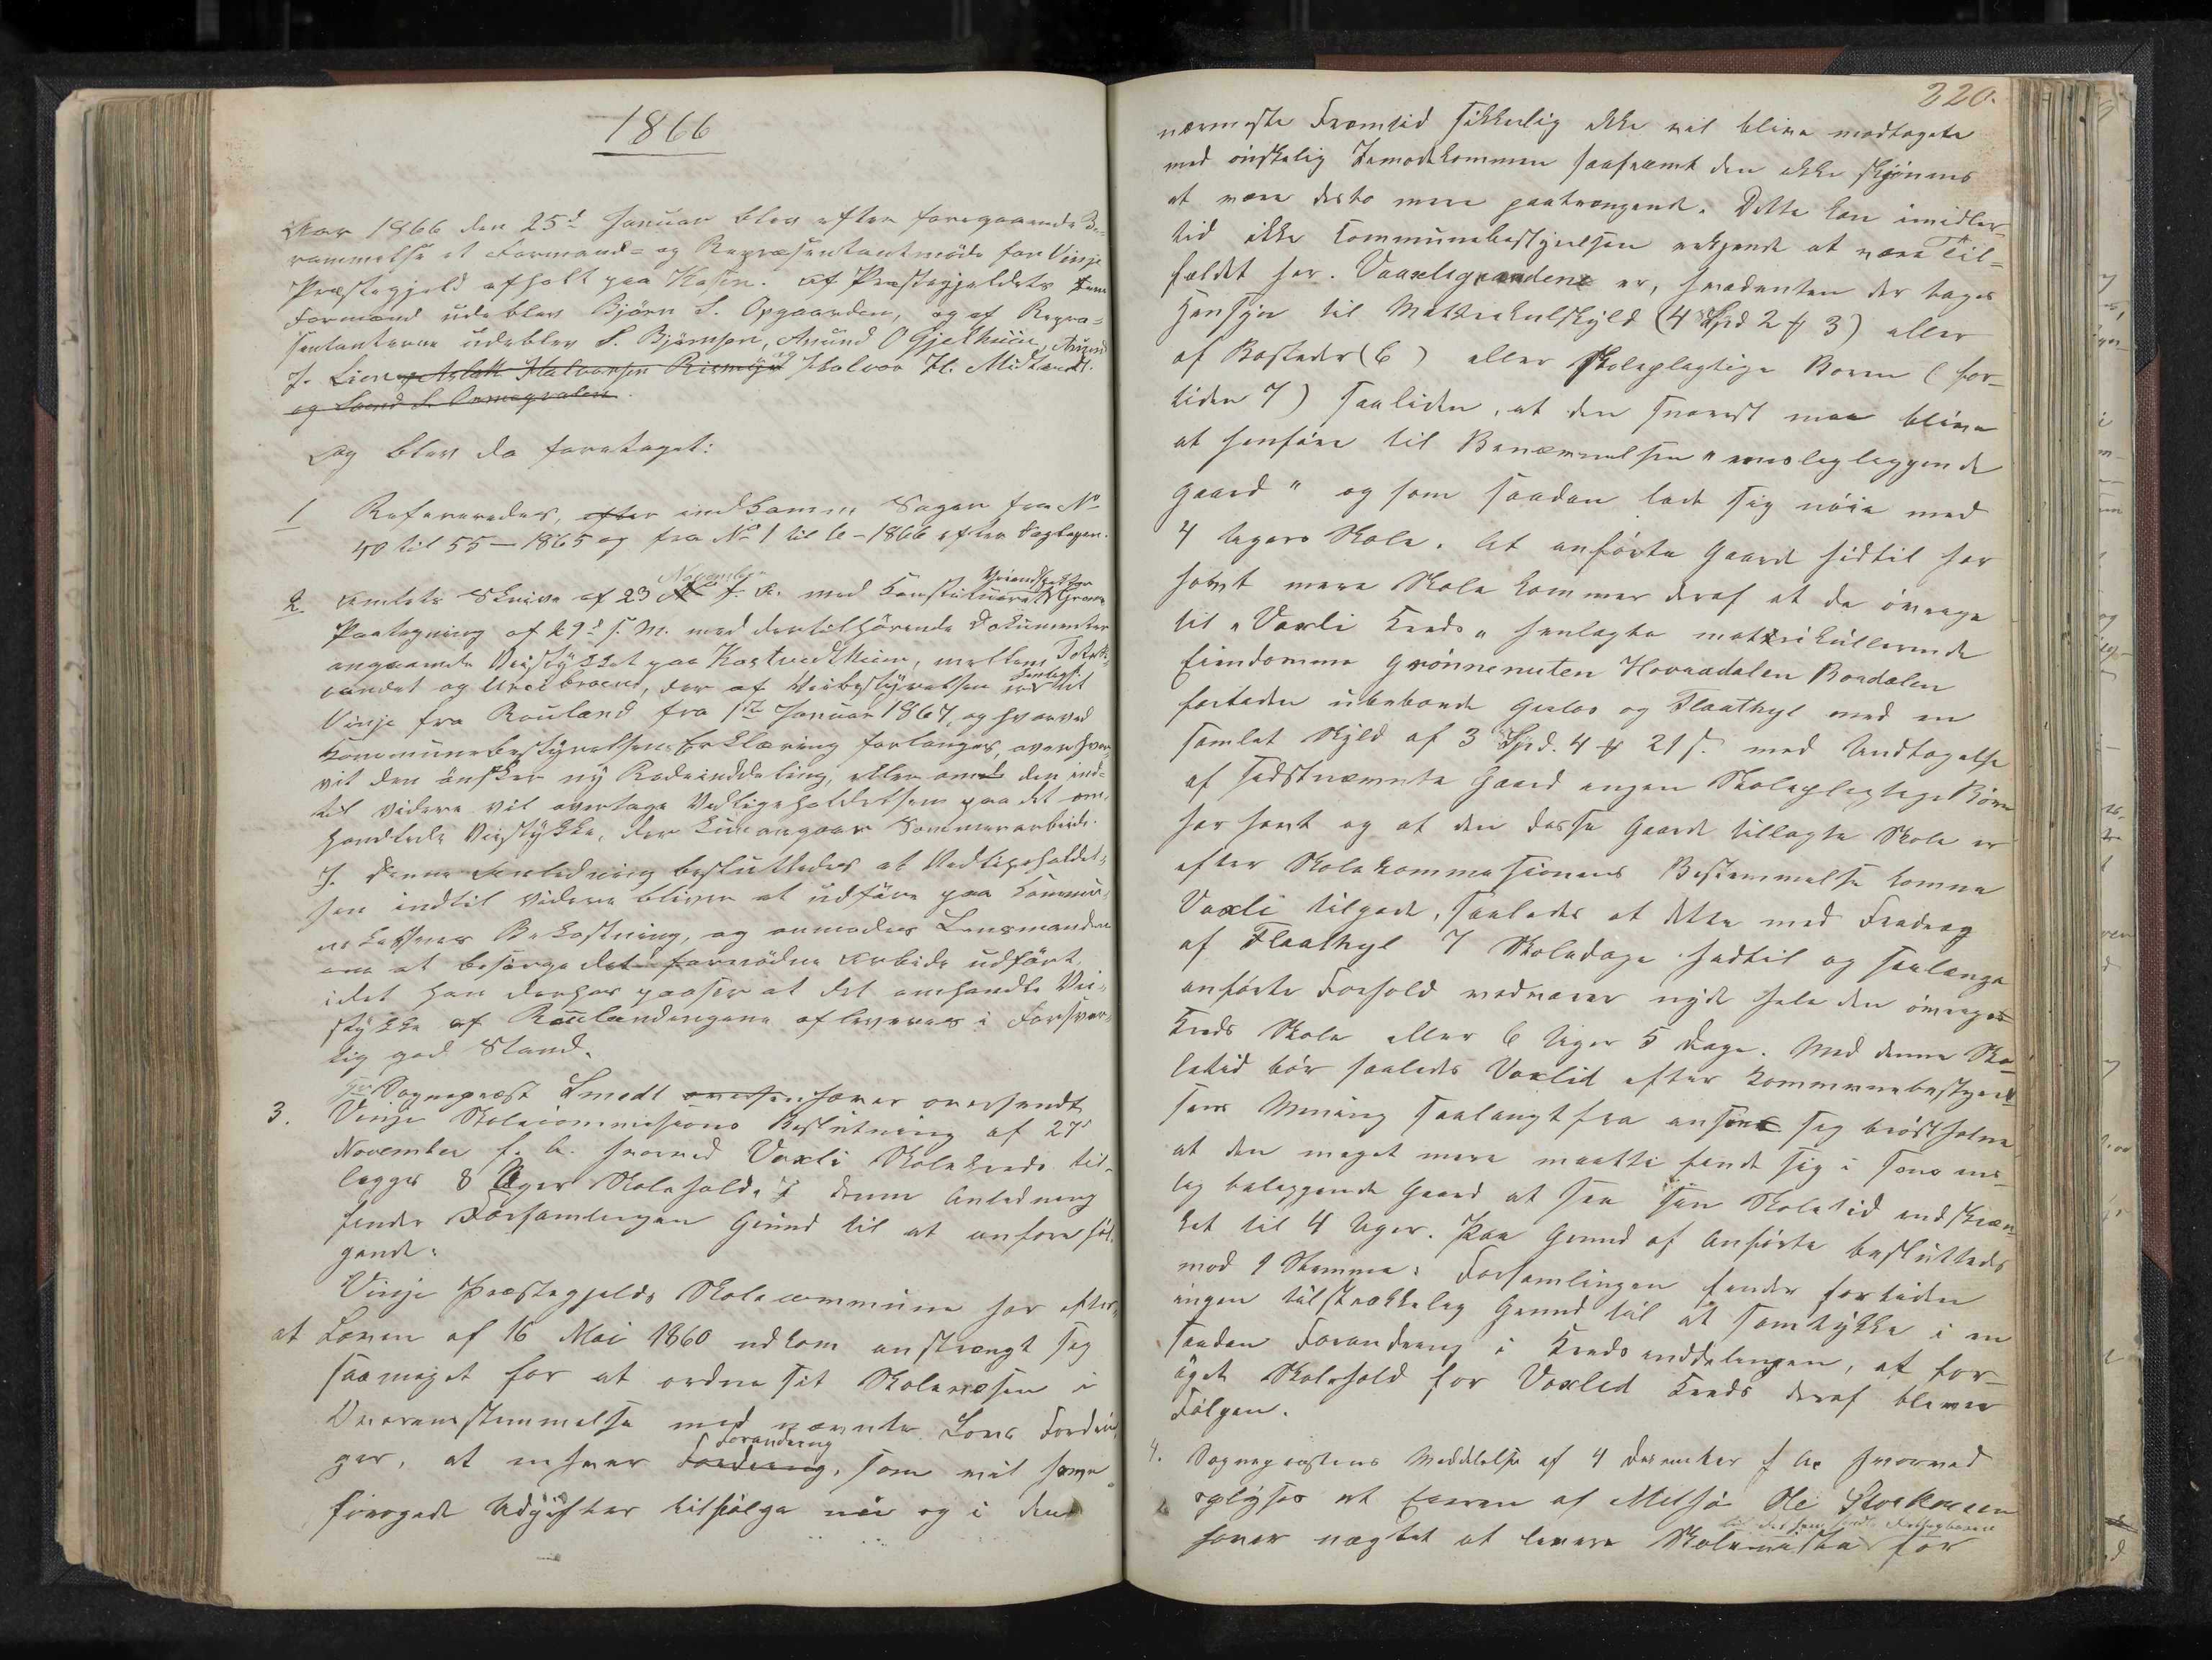 1866
Aar 1866 den 25d Januar blev efter foregaaende Be-
rammelse et Formand- og Repræsentantmøde for Vinje
Præstegjeld afholt paa Kosin. Af Præstegjeldets
Formænd udeblev Bjørn S. Opgaarden, og af Repræ-
sentanterne udeblev S. Bjørnsen, Aanund O Gjelhuus, Aanund
J. Lien og Aslak Halvorsen og Halvor H. Midtandt.
og Svend S.
Og blev da foretaget:
1 Refereredes, efter indkomne Sager fra No
40 til 55 – 1865 og fra No 1 til 6 – 1866 efter Dagbogen.
November
2. Amtets Skrive af 23 f. A. med Constitueret
Paategning af 29d s. M. med dertilhørende Dokumenter
angaaende Veistykket paa mellem
vandet og der af Veibestyrelsen er henlagt til
Vinje fra Rauland fra 1ste Januar 1867, og hvorved
Kommunebestyrelsens Erklæring forlanges, over hvor-
vidt den ønsker ny Rodeinddeling, eller om den ind-
til videre vil overtage Vedligeholdelsen paa det om-
handlede Veistykke, der kun angaar Sommerarbeide.
I denne Anledning besluttedes at Vedligeholdel-
sen indtil videre bliver at udføre paa Kommu-
nekassens Bekostning, og anmodes Lensmanden
om at besørge det fornødne Arbeide udført,
idet han derhos paaser at det omhandlede Vei-
stykke af Raulandingene afleveres i Forsvar-
lig god Stand.
Hr Sognepræst Smedt haver oversendt
3. Vinje Skolecommissions Beslutning af 27d
November f. A. hvorved Vaxli Skolekreds til-
lægges 8 Uger Skolehold. I denne Anledning
finder Forsamlingen Grund til at anføre føl-
gende:
Vinje Præstegjelds Skolecommune har efter-
at Loven af 16 Mai 1860 udkom anstrængt sig
saameget for at ordne sit Skolevæsen i
Overensstemmelse med nævnte Lovs Fordrin-
Forandring
ger, at enhver Fordring, som vil have
forøgede Udgifter tilfølge nu og i den
220.
nærmeste Fremtid sikkerlig ikke vil blive modtagete
med ønskelig Imødekommen saafremt den ikke skjønnes
at være desto mere paatrængende. Dette kan imidler-
tid ikke Communebestyrelsen erkjende at være Til-
fældet her. Vaaxligrænden er, hvadenten der tages
Hensyn til Matrikulskyld (4 Spd 2 ₰ 3) eller
af Bosteder (6) eller Skolepligtige Børn (for-
tiden 7) saa liden, at den snarest maa blive
at henføre til Benævnelsen "ensligliggende
Gaard" og som saadan lade sig nøie med
4 Ugers Skole. At anførte Gaarde hidtil har
havt mere Skole kommer deraf at de øvrige
til "Vaxli Kreds" henlagte matrikullerede
Eiendomme Grønnenuten Hovaadalen Bordalen
fortiden ubeboede Guloe og Flaathyl med en
samlet Skyld af 3 Spd. 4 ₰ 21 s. med Undtagelse
af sidstnævnte Gaard ingen Skolepligtige Børn
har havt og at den disse Gaarde tillagte Skole er
efter Skolekommissionens Bestemmelse komne
Vaxli tilgode, saaledes at dette med Fradrag
af Flaathyl 7 Skoledage hidtil og saalænge
anførte Forhold vedvarer nyde hele den øvrige
Kreds Skole eller 6 Uger 5 Dage. Med denne Sko-
letid bør saaledes Vaxlid efter Kommunebestyrel-
sens Mening saalangtfra ansee sig brøstholden
at den meget mere maatte finde sig i som ens-
lig beliggende Gaard at see sin Skoletid indskræn-
ket til 4 Uger. Paa Grund af Anførte besluttedes
mod 1 Stemme: Forsamlingen finder fortiden
ingen tilstrækkelig Grund til at samtykke i en
saadan Forandring i Kredsinddelingen, at for-
øget Skolehold for Vaxlid Kreds deraf bliver
Følgen.
4. Sognepræstens Meddelelse af 4 December f A. hvorved
oplyses at Eieren af Mithø Ole
haver nægtet at levere for